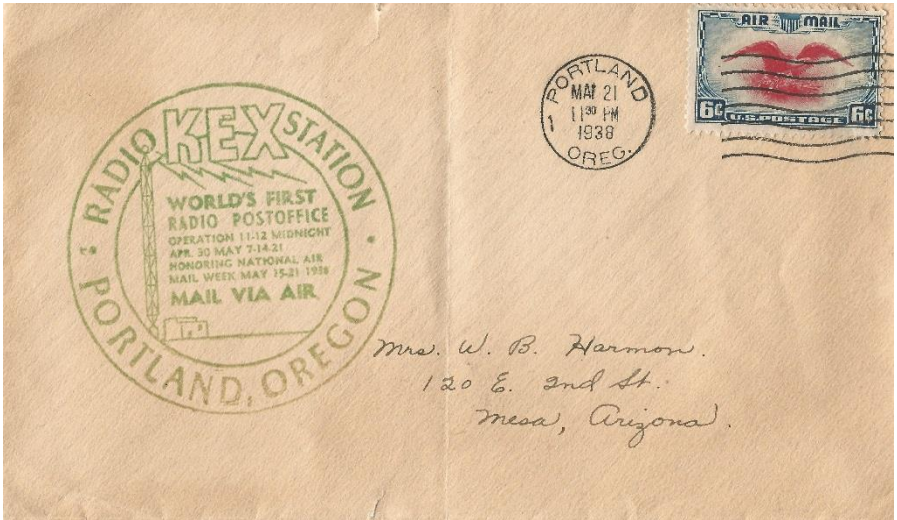 RADIO KEX STATION
WORLD'S FIRST
RADIO POSTOFFICE
OPERATION 11-12 MIDNIGHT
APR. 30 MAY 7-14-21
HONORING NATIONAL AIR
MAIL WEEK MAY 15-21 1938
MAIL VIA AIR
PORTLAND, OREGON
PORTLAND
MAY 21
11 30 PM
1938
1
OREG.
AIR MAIL
6¢ U.S. POSTAGE 6¢
Mrs. W. B. Harmon.
120 E. 2nd St.
Mesa, Arizona.